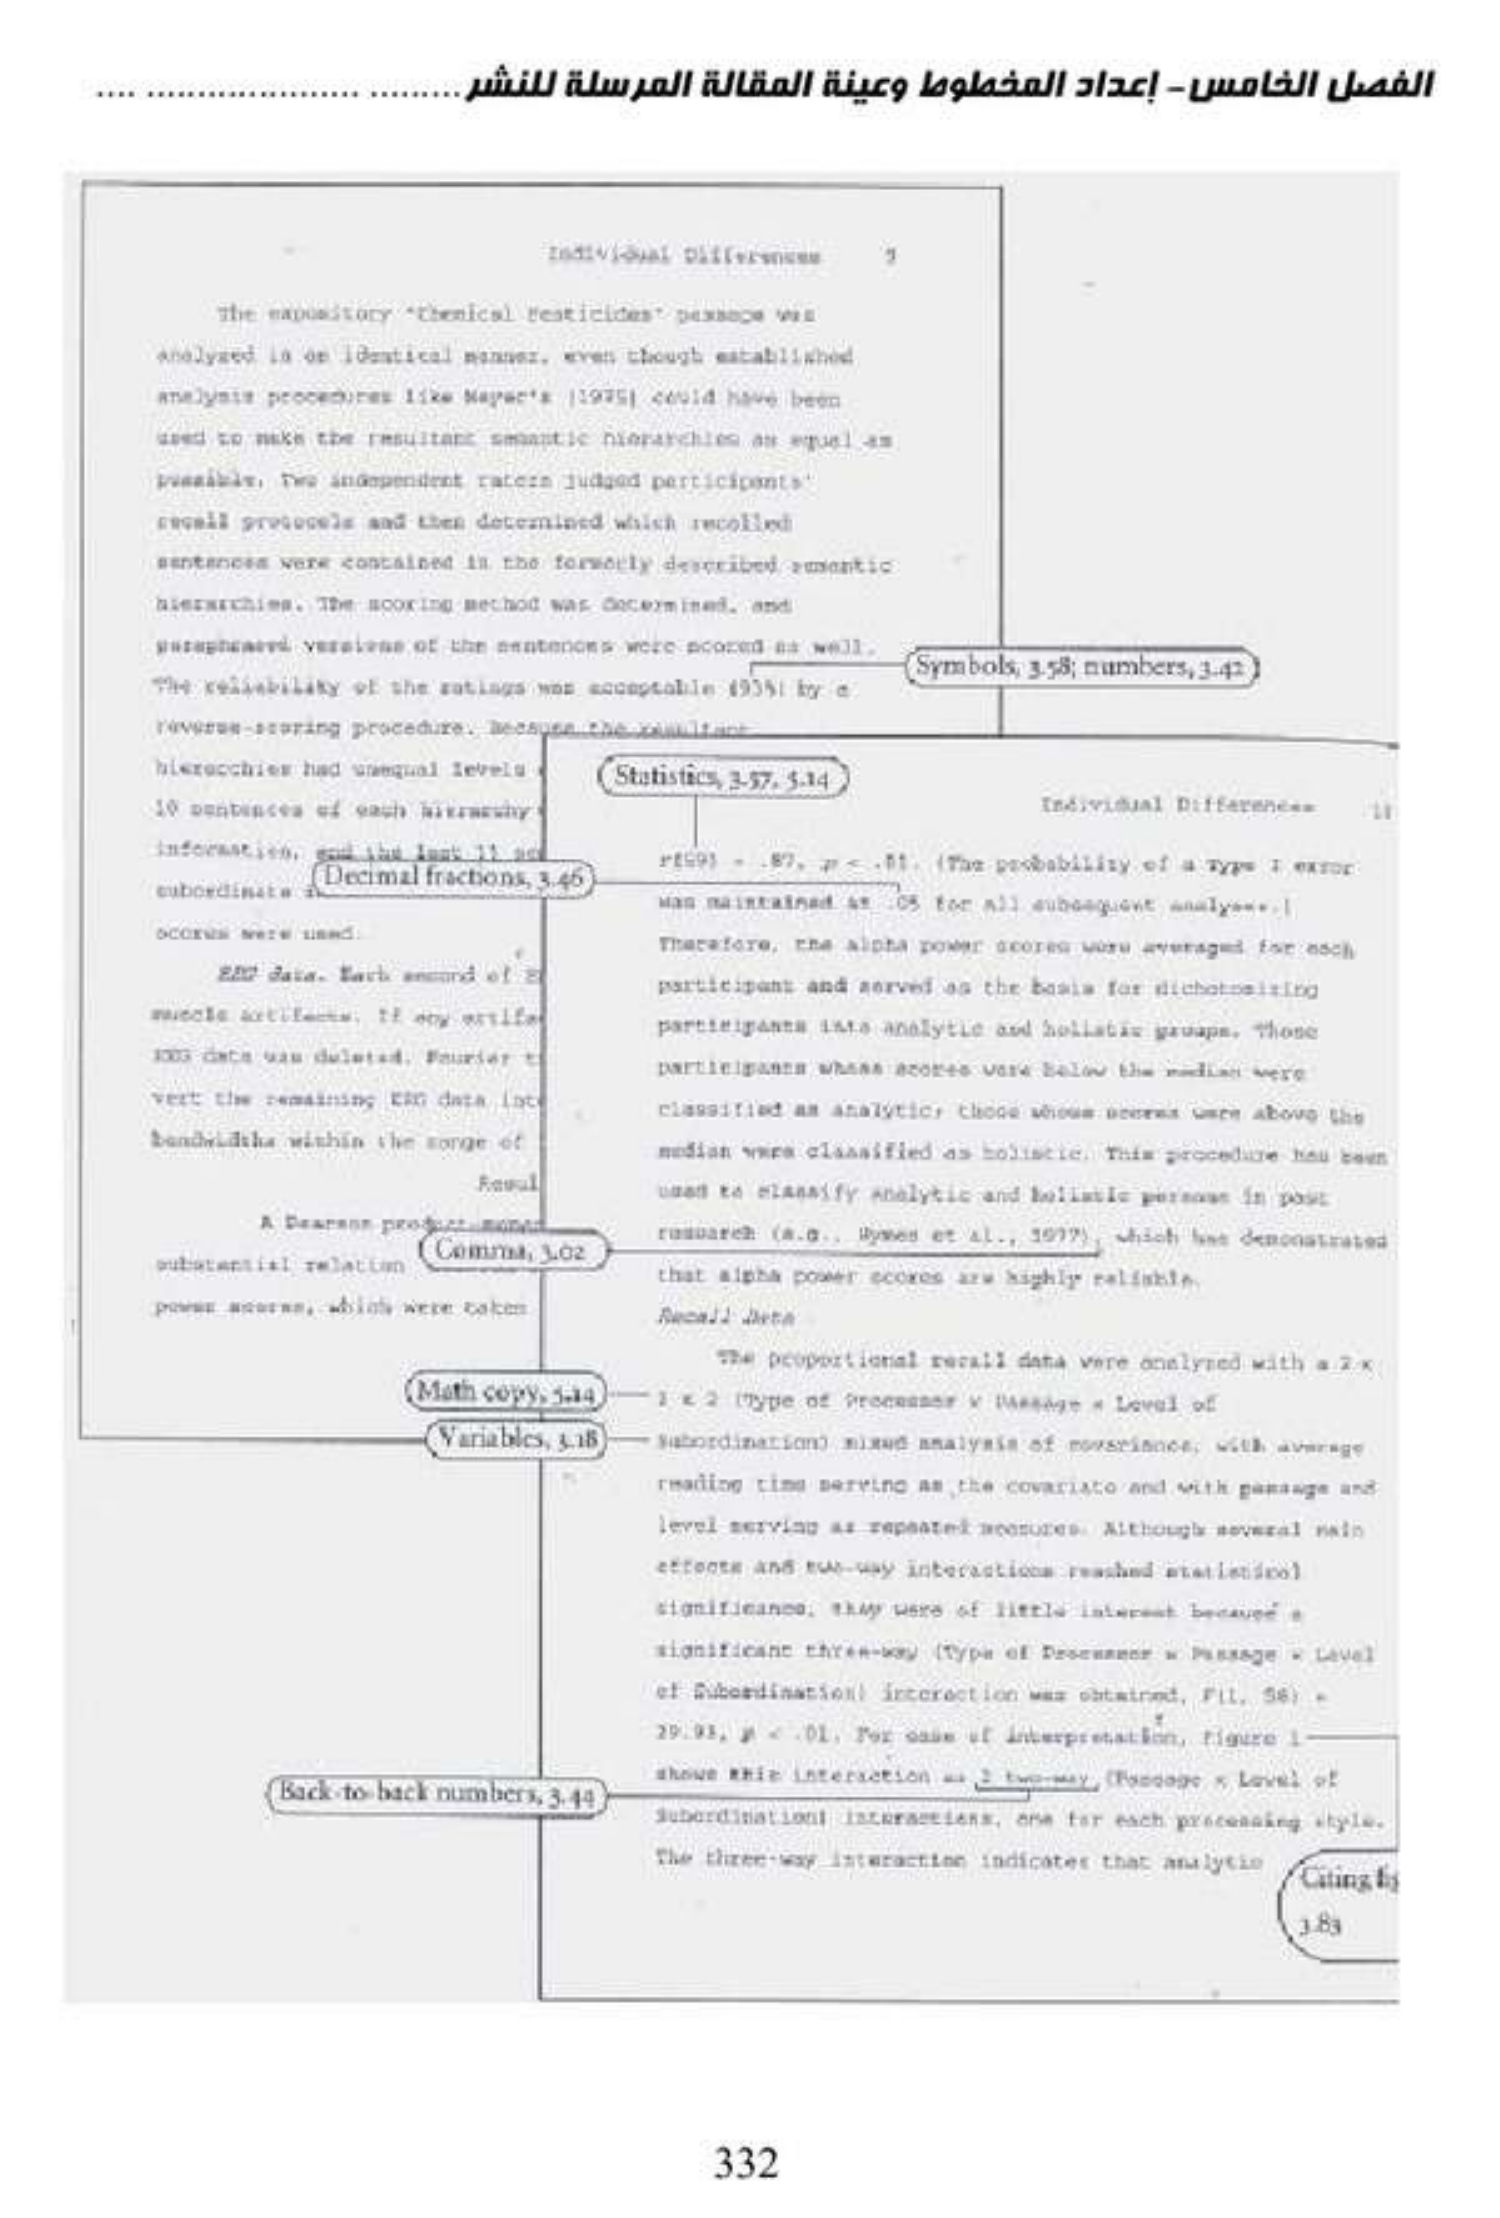 الفصل الخامس – إعداد المخطوط وعينة المقالة المرسلة للنشر
Individual Differences 9
The expository "Chemical Pesticides" passage was
analyzed in an identical manner, even though established
analysis procedures like Meyer's (1975) could have been
used to make the resultant semantic hierarchies as equal as
possible. Two independent raters judged participants'
recall protocols and then determined which recalled
sentences were contained in the formerly described semantic
hierarchies. The scoring method was determined, and
paraphrased versions of the sentences were scored as well.
Symbols, 3.58; numbers, 3.42
The reliability of the ratings was acceptable (93%) by a
reverse-scoring procedure. Because the resultant
hierarchies had unequal levels
10 sentences of each hierarchy
information, and the last 11
subordinate
scores were used.
EEG data. Each second of
muscle artifacts. If any
EEG data was deleted. Fourier
vert the remaining EEG data
bandwidths within the range of
Resul
A Pearson product-moment
substantial relation
power scores, which were taken
Statistics, 3.57, 5.14
Individual Differences 10
Decimal fractions, 3.46
= .87, p < .01. (The probability of a Type I error
was maintained at .05 for all subsequent analyses.)
Therefore, the alpha power scores were averaged for each
participant and served as the basis for dichotomizing
participants into analytic and holistic groups. Those
participants whose scores were below the median were
classified as analytic; those whose scores were above the
median were classified as holistic. This procedure has been
used to classify analytic and holistic persons in past
research (e.g., et al., 1977), which has demonstrated
Comma, 3.02
that alpha power scores are highly reliable.
Recall Data
The proportional recall data were analyzed with a 2 ×
Math copy, 5.14
2 × 2 (Type of Processor × Passage × Level of
Variables, 3.18
Subordination) mixed analysis of covariance, with average
reading time serving as the covariate and with passage and
level serving as repeated measures. Although several main
effects and two-way interactions reached statistical
significance, they were of little interest because a
significant three-way (Type of Processor × Passage × Level
of Subordination) interaction was obtained, F(1, 56) =
29.93, p < .01. For ease of interpretation, Figure 1
shows this interaction as 2 two-way (Passage × Level of
Back-to-back numbers, 3.44
Subordination) interactions, one for each processing style.
The three-way interaction indicates that analytic
Citing fig
3.83
332